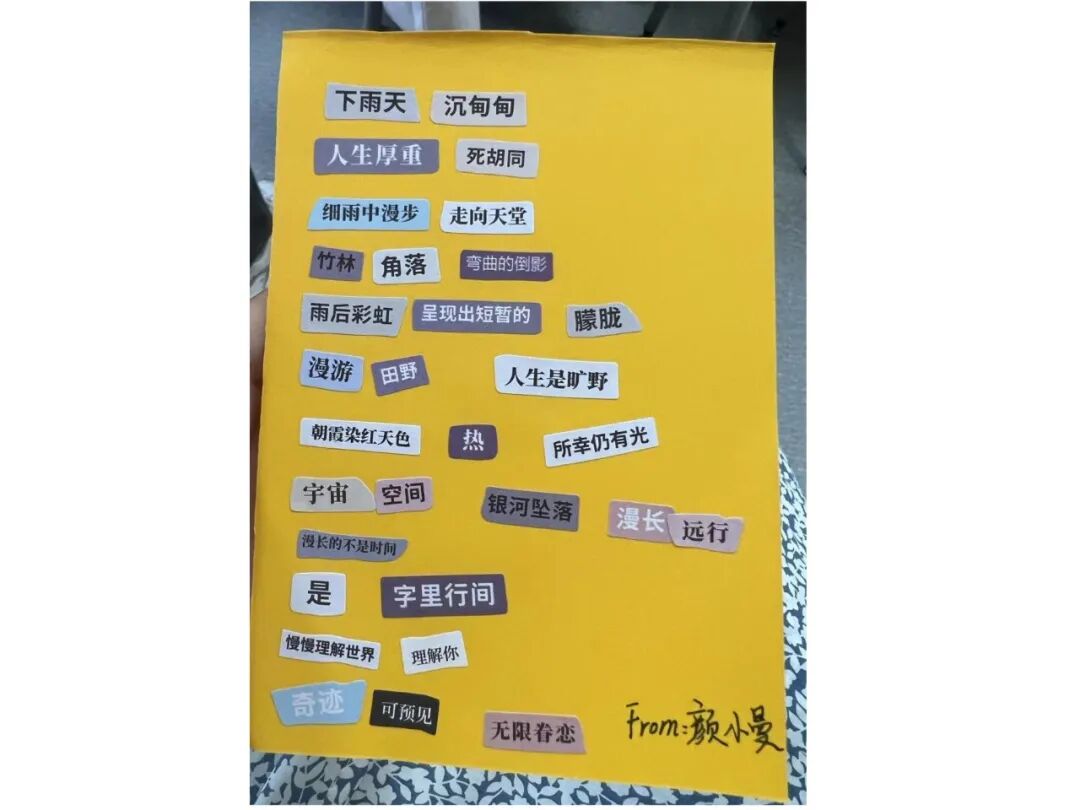 下雨天 沉甸甸
人生厚重 死胡同
细雨中漫步 走向天堂
竹林 角落 弯曲的倒影
雨后彩虹 呈现出短暂的 朦胧
漫游 田野 人生是旷野
朝霞染红天色 热 所幸仍有光
宇宙 空间 银河坠落 漫长 远行
漫长的不是时间
是 字里行间
慢慢理解世界 理解你
奇迹 可预见 无限眷恋
From:颜小曼